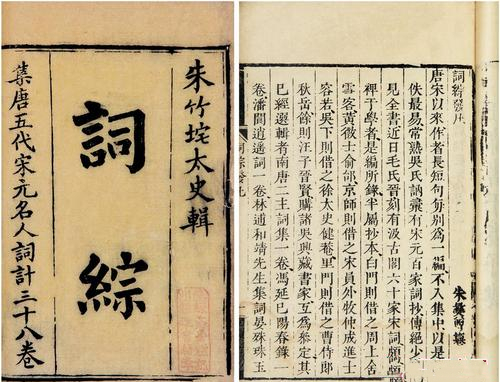 朱竹垞太史輯
詞綜
蒐唐五代宋元名人詞計三十八卷
詞綜發凡
朱彝尊
唐宋以來作者長短句每別爲一編不入集中以是
佚最易常熟吳氏訥彚有宋元百家詞抄傳絶少
見全書近日毛氏晉刻有汲古閣六十家宋詞頗
裨于學者是編所錄半屬抄本白門則借之周上舍
雪客黃徵士俞邰京師則借之宋員外牧仲成進士
容若吳下則借之徐太史健菴里門則借之曹侍郎
秋岳餘則汪子晉賢購諸吳興藏書家互爲參定其
已經選輯者南唐二主詞集一卷馮延巳陽春錄一
卷潘閬逍遙詞一卷林逋和靖先生集詞晏殊珠玉